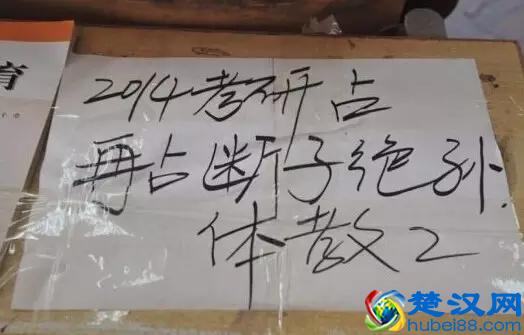 育
2014考研占
再占断子绝孙.
体散2
楚汉网
hubei88.com